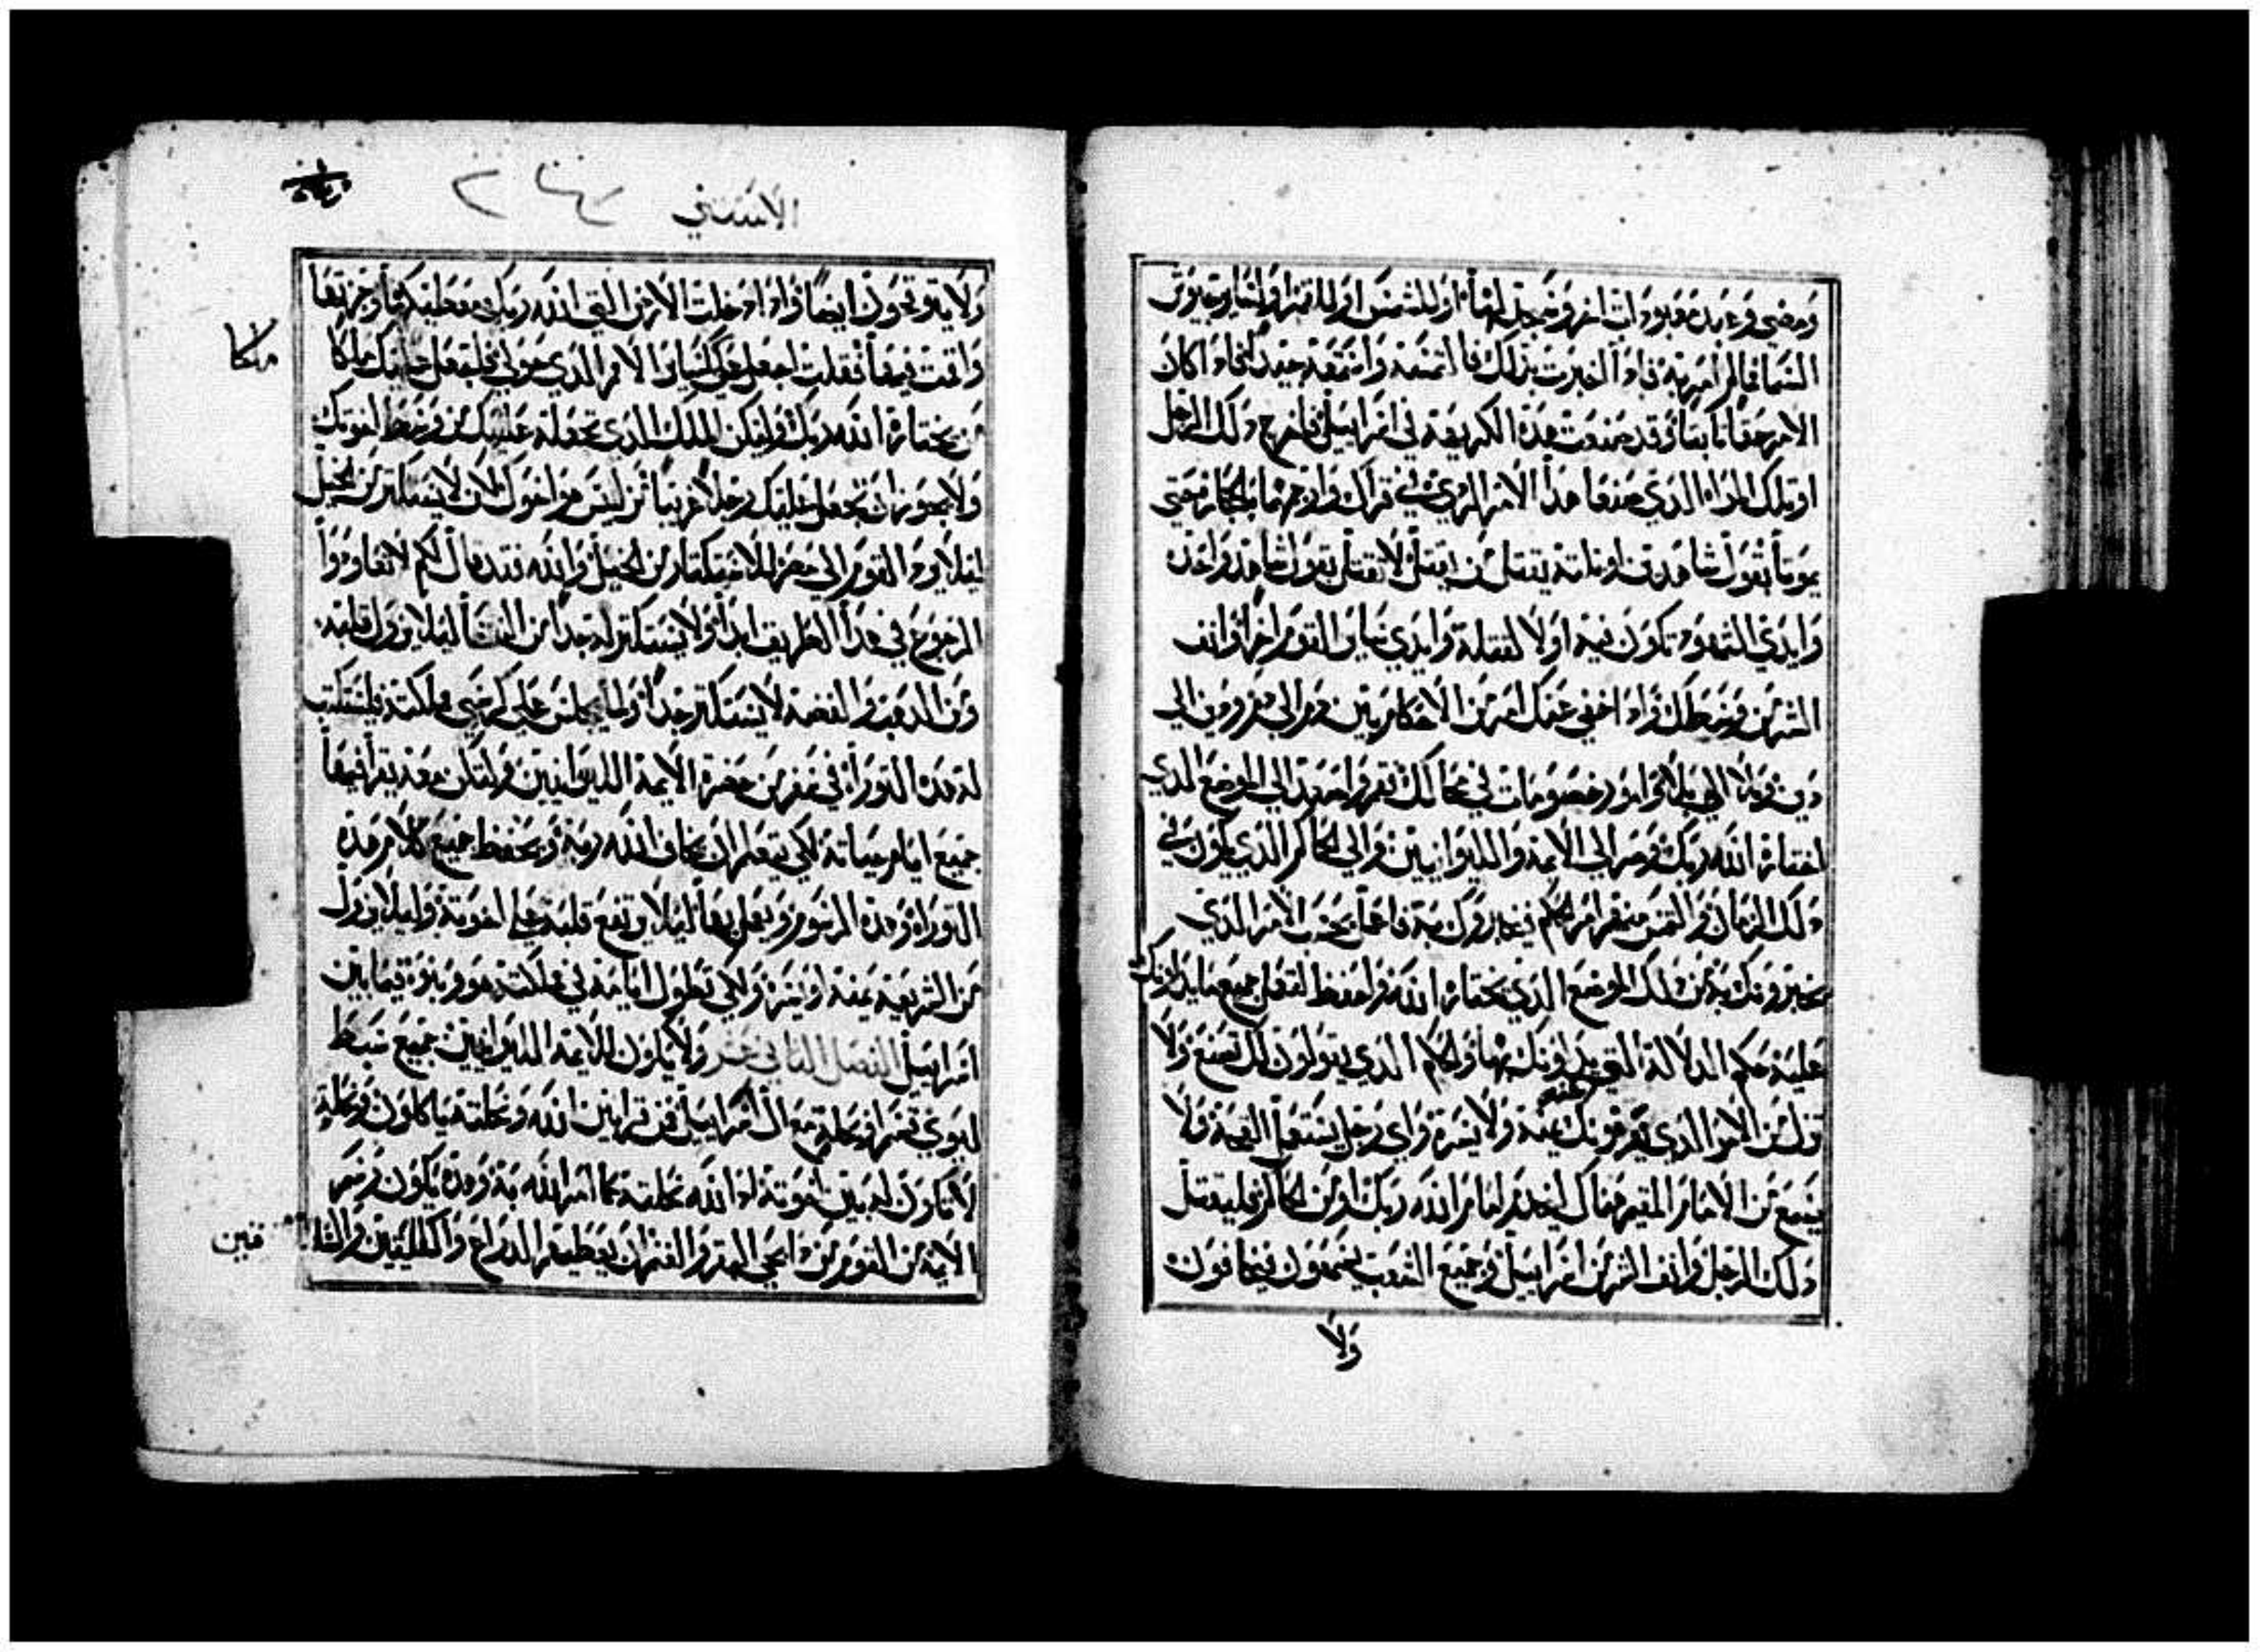 ومضى وعبد معبودات اخر وسجد لها او للشمس او للقمر او لسائر جيوش
السما مما لم امر به فاذا اخبرت بذلك فالتمسه واسمعه جيدا فاذا كان
الامر حقا ثابتا وقد صنعت هذه الكريهة في اسرايل فاخرج ذلك الرجل
او تلك المراه الذي صنعا هذا الامر الردي في قراك وارجمهما بالحجارة حتى
يموتا بقول شاهدين او ثلثة يقتل من يقتل لا يقتل بقول شاهد واحد
وايدي الشهود تكون فيه اولا لقتله وايدي سائر القوم اخرا وانف
الشر من وسطك واذا خفي عنك امر من الاحكام بين دم الى دم ومن الى
دين وبلا الى بلا وامور خصومات في محالك فقم واصعد الى الموضع الذي
اختاره الله ربك وصر الى الايمة والليوانيين والى الحاكم الذي يكون في
ذلك الزمان والتمس منهم امر الحكم فيخبروك به فاعمل بحسب الامر الذي
يخبرونك به من ذلك الموضع الذي يختاره الله واحفظ لتفعل جميع ما يدلونك
عليه حكم الدلالة التي يدلونك بها والحكم الذي يقولون لك تصنع ولا
تزل عن الامر الذي يعرفونك عنه يمنة ولا يسره واي رجل يستعمل القحة ولا
يسمع من الامام المقيم هناك ليخدم امام الله ربك او من الحاكم فليقتل
ذلك الرجل وانف الشر من اسرايل وجميع الشعب يسمعون فيخافون
ولا
الاستثنى
ولا يتوقحون ايضا واذا دخلت الارض التي الله ربك معطيكها وحزتها
واقمت فيها فقلت اجعل علي كسائر الامم الذي حولي فلتجعل عليك ملكا
ملكا
من يختاره الله ربك وليكن الملك الذي تجعله عليك من وسط اخوتك
ولا يجوز ان تجعل عليك رجلا غريبا من ليس هو اخوك لان لا يستكثر من الخيل
ليلا يرد القوم الى مصر للاستكثار من الخيل والله فقد قال لكم لا تعاودوا
الرجوع في هذا الطريق ابدا ولا يستكثر له جدا من النسا ليلا يزول قلبه
ومن الذهب والفضة لا يستكثر جدا ولما يجلس على كرسي ملكته فليستكتب
له هذه التوراة في سفر من حضرة الايمة الليوانيين ولتكن معه يقرا فيها
جميع ايام حياته لكي يتعلم ان يخاف الله ربه ويحفظ جميع كلام هذه
التوراة وهذه الرسوم ويعمل بها ليلا يرتفع قلبه على اخوته وليلا يزول
عن الشريعة يمنة او يسرة ولكي تطول ايامه في ملكته هو وبنوه فيما بين
اسرايل الفصل الثاني عشر ولا يكون للايمة الليوانيين جميع سبط
ليوي قسم او نحلة مع ال اسرايل من قرابين الله ونحلته ياكلون ونحلة
لا تكون له بين اخوته اذ الله نحلته كما امر الله به وهذه يكون رسم
الايمة من القوم من ذابحي البقر والغنم ان يعطيهم الذراع والفكين والقبا